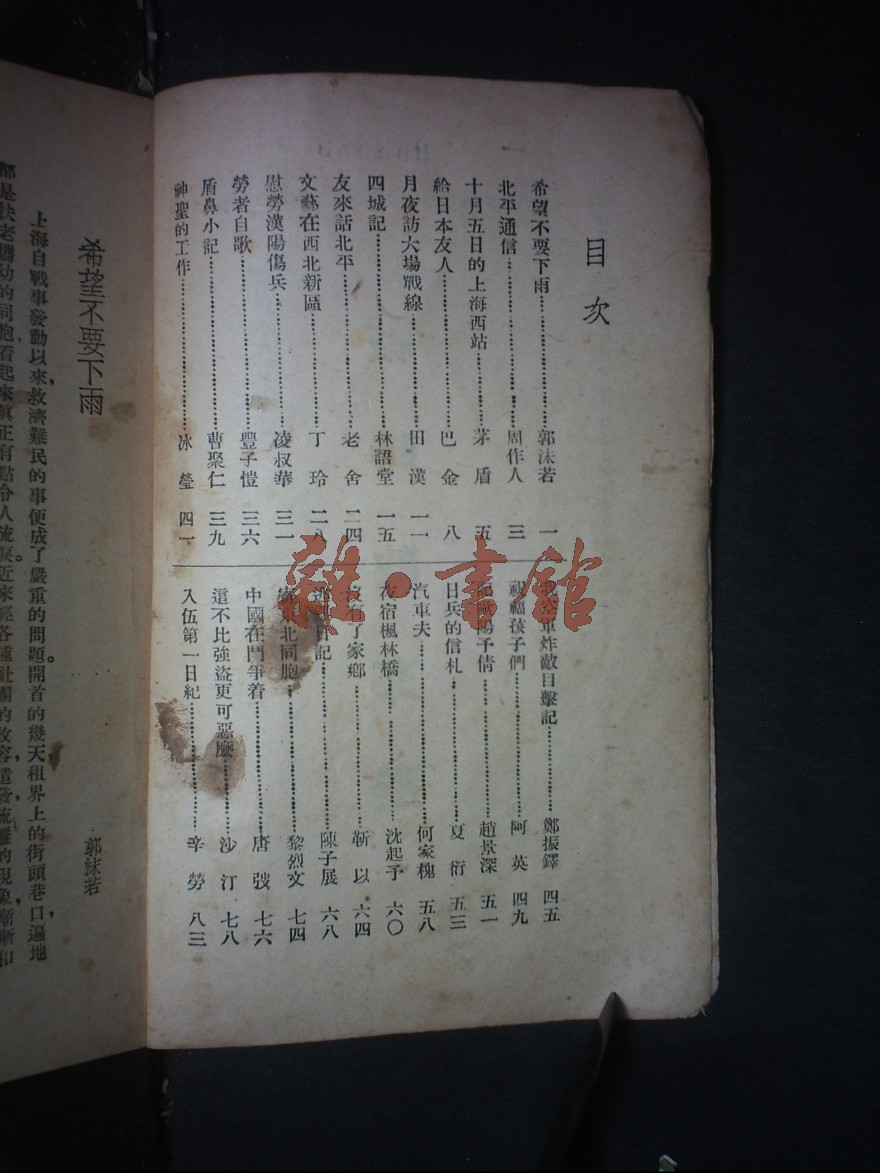 目次
希望不要下雨 郭沫若 一
北平通信 周作人 三
十月五日的上海西站 茅盾 五
給日本友人 巴金 八
月夜訪大場戰線 田漢 一一
四城記 林語堂 一五
友來話北平 老舍 二四
文藝在西北新區 丁玲 二八
慰勞漢陽傷兵 凌叔華 三一
勞者自歌 豐子愷 三六
盾鼻小記 曹聚仁 三九
神聖的工作 冰瑩 四一
我空軍炸敵目擊記 鄭振鐸 四五
祝福孩子們 阿英 四九
歐陽予倩 趙景深 五一
日兵的信札 夏衍 五三
汽車夫 何家槐 五八
夜宿楓林橋 沈起予 六〇
沒有了家鄉 靳以 六四
日記 陳子展 六八
東北同胞 黎烈文 七四
中國在鬥爭着 唐弢 七六
這不比強盜更可惡麼 沙汀 七八
入伍第一日紀 辛勞 八三
希望不要下雨
郭沫若
上海自戰事發動以來，救濟難民的事便成了嚴重的問題。開首的幾天租界上的街頭巷口，遍地
都是扶老攜幼的同胞，看起來眞正有點令人流淚。近來經各種社團的收容，遣發，流離的現象漸漸和
雜·書館